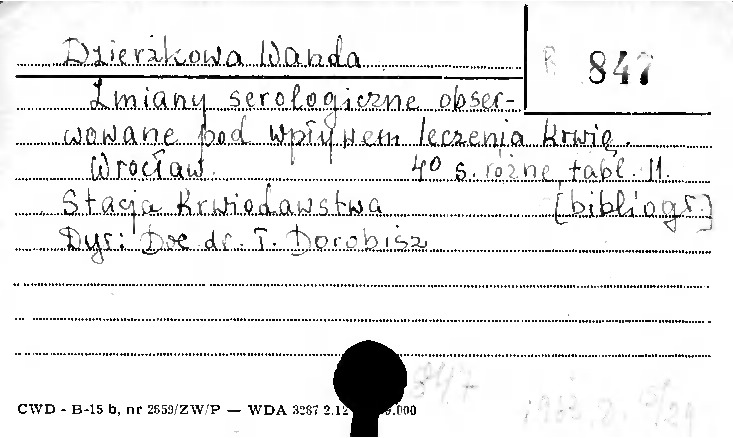 Dzierżkowa Wanda
B 847
Zmiany serologiczne obser-
wowane pod wpływem leczenia krwią.
Wrocław. 40 s. różne, tabl. 11.
Stacja Krwiodawstwa [bibliogr.]
Dyr: Doc dr. T. Dorobisz
847
CWD - B-15 b, nr 2859/ZW/P — WDA 3287 2.12 .000